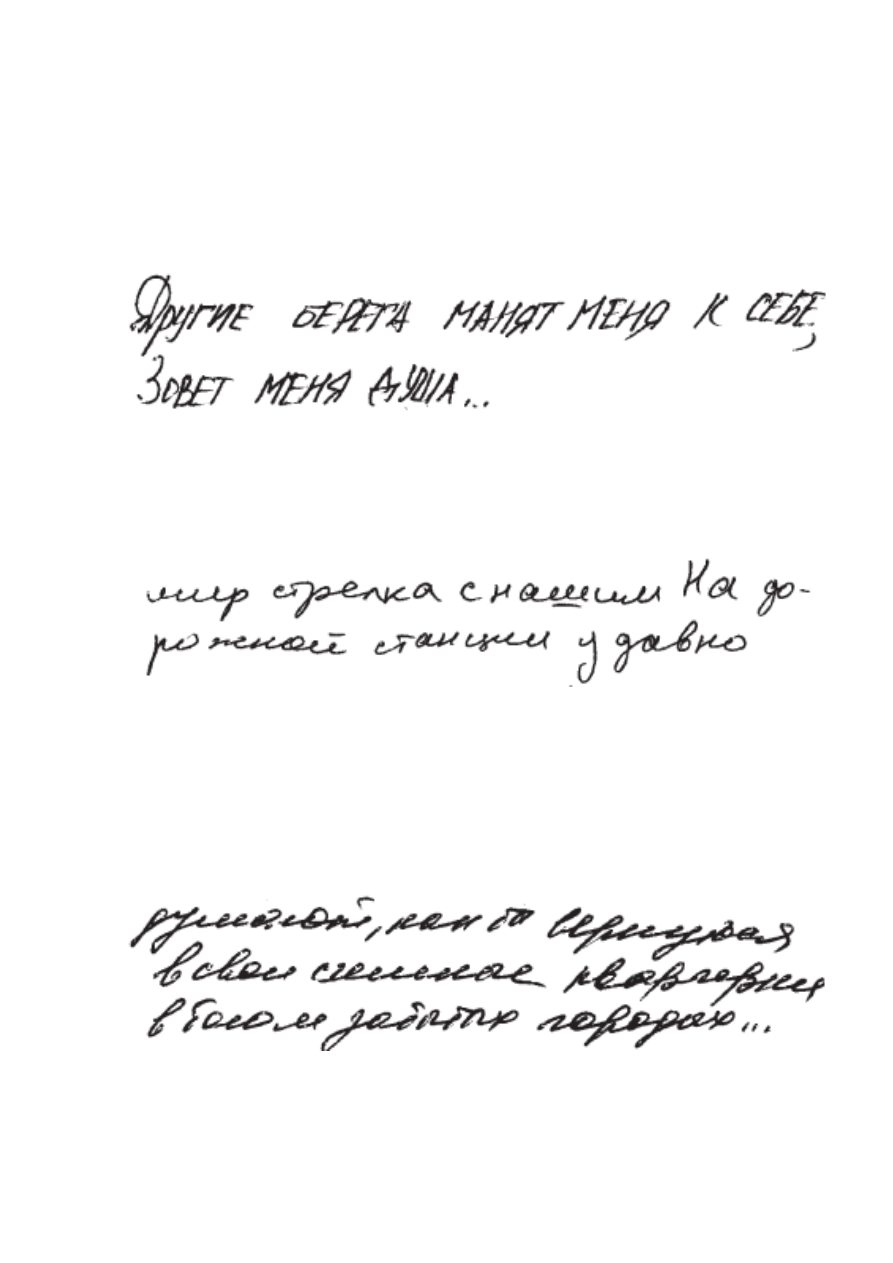 Другие берега манят меня к себе,
Зовет меня душа...
мир стрелка с нашим На до-
рожной станции у давно
думают, как бы вернуться
в свои съемные квартирки
в забытых городах...